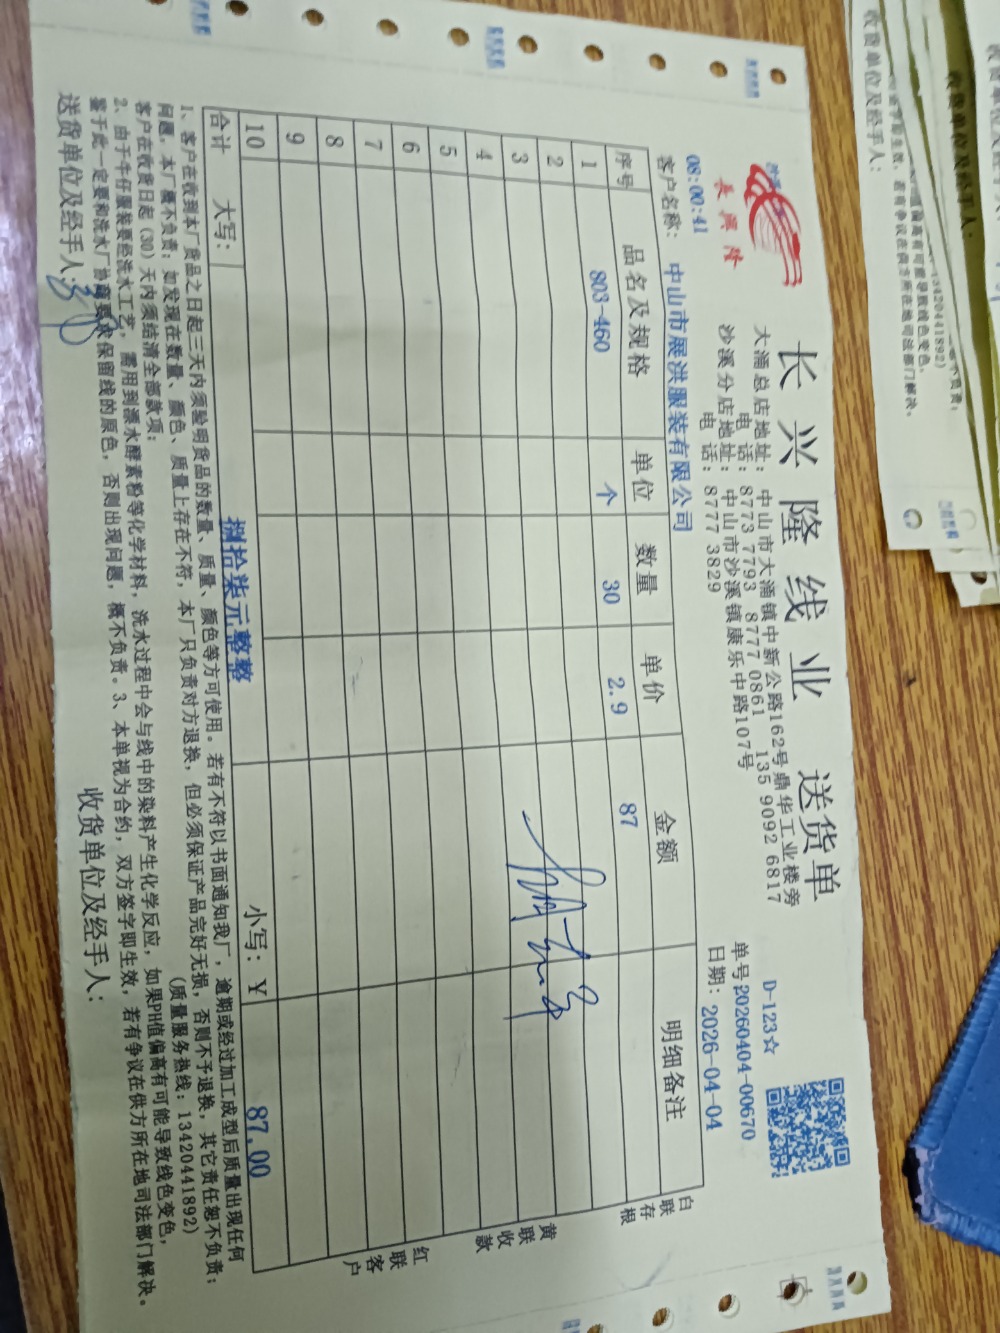 长兴隆线业 送货单
長興隆
大涌总店地址：中山市大涌镇中新公路162号鼎华工业楼旁
电 话：8773 7793 8777 0861 135 9092 6817
沙溪分店地址：中山市沙溪镇康乐中路107号
电 话：8777 3829
D-123☆
单号20260404-00670
日期：2026-04-04
08:00:41
客户名称：中山市展洪服装有限公司
序号 品名及规格 单位 数量 单价 金额 明细备注
1 803-460 个 30 2.9 87
2
3
4
5
6
7
8
9
10
合计 大写： 捌拾柒元整整 小写：￥ 87.00
白联存根
黄联收款
红联客户
1、客户在收到本厂货品之日起三天内须验明货品的数量、质量、颜色等方可使用。若有不符以书面通知我厂，逾期或经过加工成型后质量出现任何
问题，本厂概不负责；如发现在数量、颜色、质量上存在不符，本厂只负责对方退换，但必须保证产品完好无损，否则不予退换，其它责任恕不负责；
客户在收货日起（30）天内须给清全部款项； （质量服务热线：13420441892）
2、由于牛仔服装要经洗水工艺，需用到漂水酵素粉等化学材料，洗水过程中会与线中的染料产生化学反应，如果PH值偏高有可能导致线色变色，
鉴于此一定要和洗水厂协商要求保留线的原色，否则出现问题，概不负责。3、本单视为合约，双方签字即生效，若有争议在供方所在地司法部门解决。
送货单位及经手人： 收货单位及经手人：
收货单位及经手人：